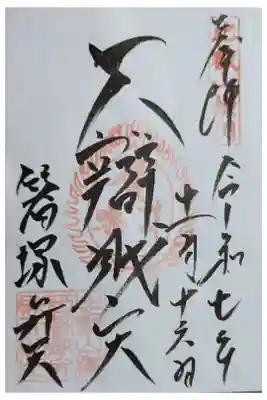 奉拝
令和七年
十一月十六日
大辯財天
塚弁天